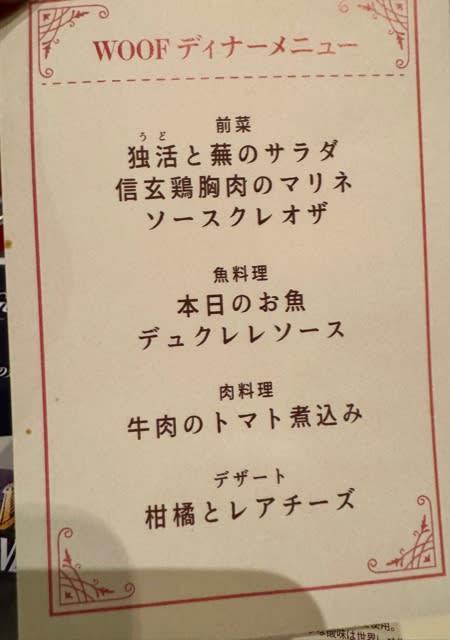 WOOF ディナーメニュー
前菜
うど
独活と蕪のサラダ
信玄鶏胸肉のマリネ
ソースクレオザ
魚料理
本日のお魚
デュクレレソース
肉料理
牛肉のトマト煮込み
デザート
柑橘とレアチーズ
酸味は世界